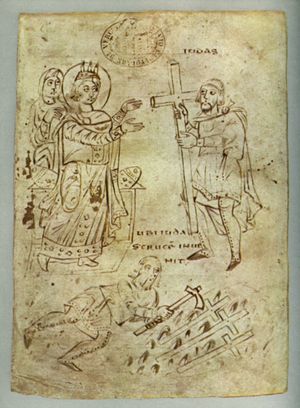 IUDAS
UBI IUDA
S CRUCE INUE
NIT